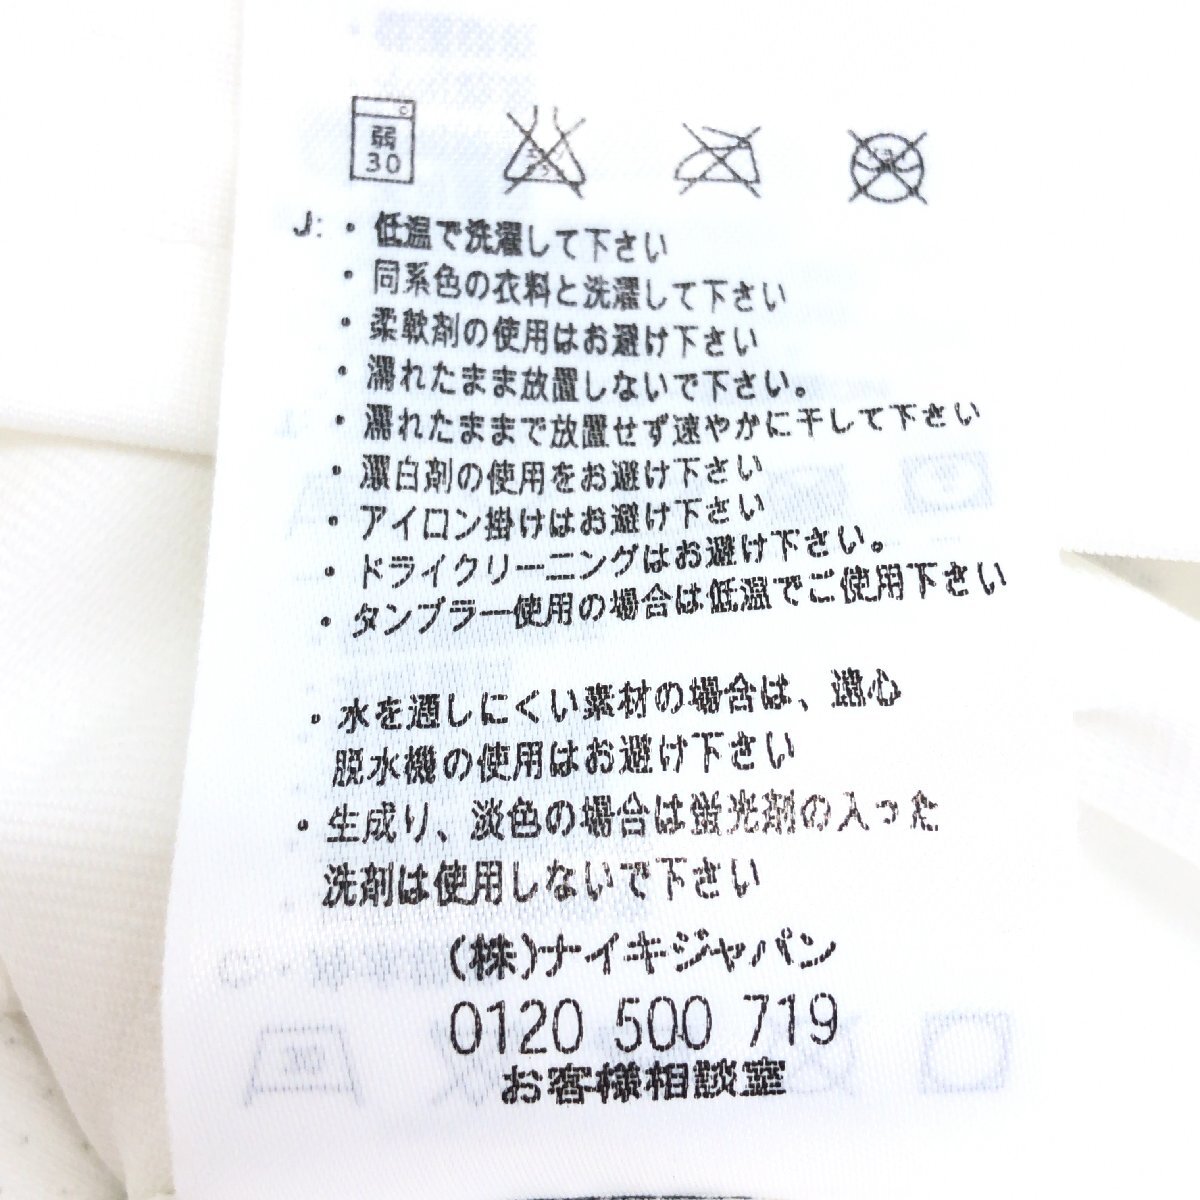 弱
30
J: ・低温で洗濯して下さい
・同系色の衣料と洗濯して下さい
・柔軟剤の使用はお避け下さい
・濡れたまま放置しないで下さい。
・濡れたままで放置せず速やかに干して下さい
・漂白剤の使用をお避け下さい
・アイロン掛けはお避け下さい
・ドライクリーニングはお避け下さい。
・タンブラー使用の場合は低温でご使用下さい
・水を通しにくい素材の場合は、遠心
脱水機の使用はお避け下さい
・生成り、淡色の場合は蛍光剤の入った
洗剤は使用しないで下さい
(株)ナイキジャパン
0120 500 719
お客様相談室